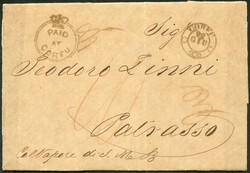 PAID
AT
CORFU
CORFU
GIU
Sig
Teodoro Zinni
Patrasso
Col Vapore di S. M. B.